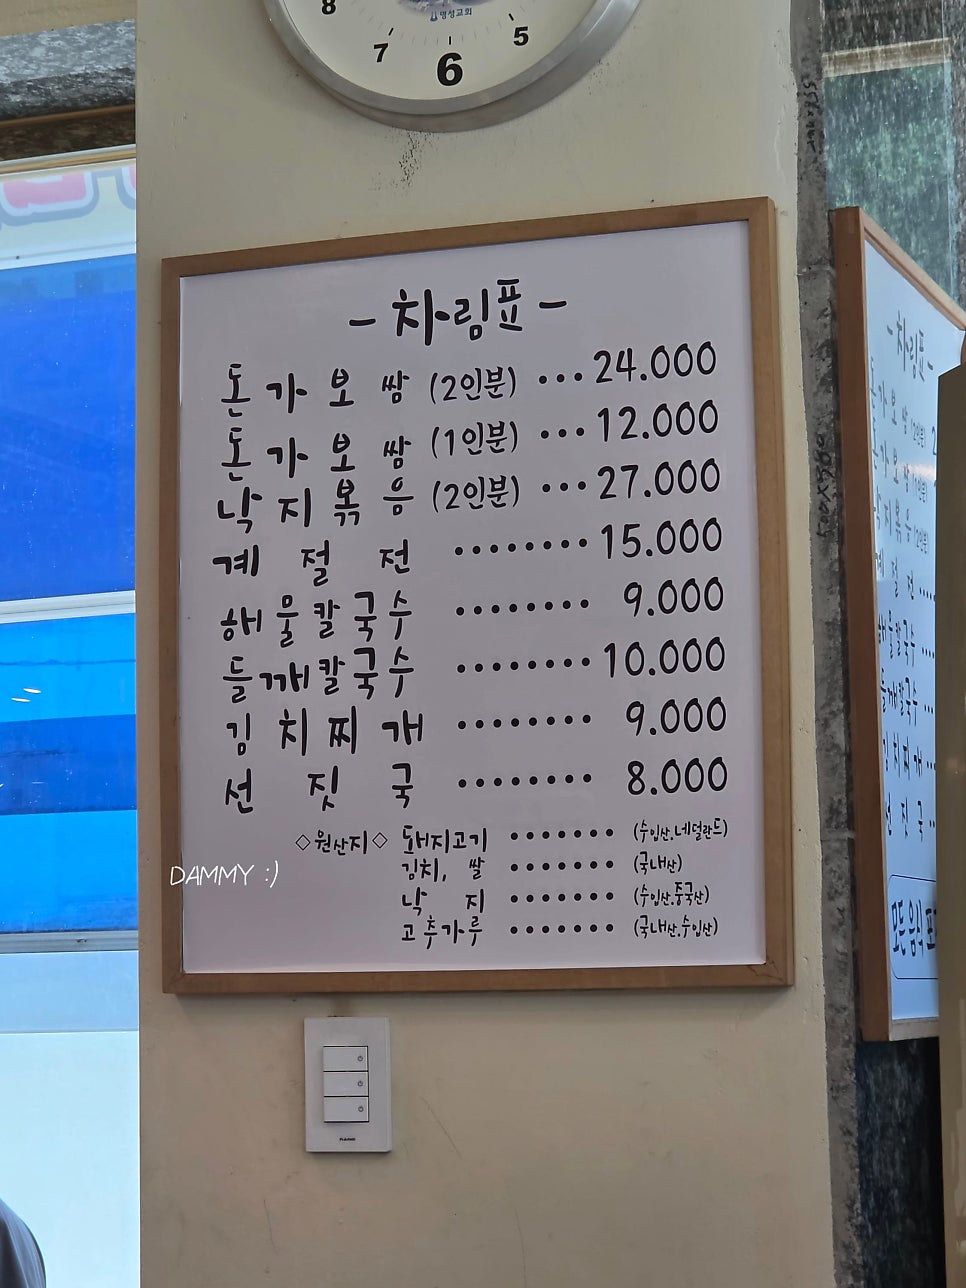 8
7
6
5
명성교회
- 차림표 -
돈가보쌈 (2인분) ··· 24.000
돈가보쌈 (1인분) ··· 12.000
낙지볶음 (2인분) ··· 27.000
계절전 ········ 15.000
해물칼국수 ········ 9.000
들깨칼국수 ········ 10.000
김치찌개 ········ 9.000
선짓국 ········ 8.000
◇원산지◇ 돼지고기 ······· (수입산,네덜란드)
김치, 쌀 ······· (국내산)
낙지 ······· (수입산.중국산)
고추가루 ······· (국내산.수입산)
DAMMY :)
- 차림표 -
돈가보쌈 (2인분) 2
돈가보쌈 (1인분)
낙지볶음 (2인분)
계절전 ·····
해물칼국수 ····
들깨칼국수 ···
김치찌개 ···
선짓국 ··
모든 음식 포